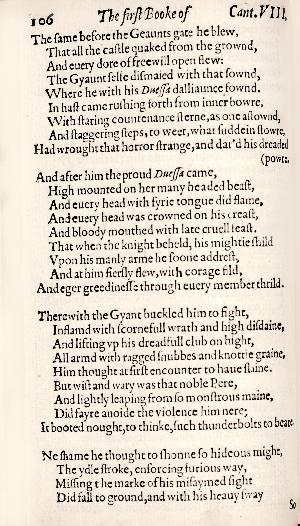 106 The first Booke of Cant. VIII.
The same before the Geaunts gate he blew,
That all the castle quaked from the grownd,
And euery dore of freewill open flew:
The Gyaunt selfe dismaied with that sownd,
Where he with his Duessa dalliaunce fownd.
In hast came rushing forth from inner bowre,
With staring countenance sterne, as one astownd,
And staggering steps, to weet, what suddein stowre,
Had wrought that horror strange, and dar'd his dreaded
(powre.
And after him the proud Duessa came,
High mounted on her many headed beast,
And euery head with fyrie tongue did flame,
And euery head was crowned on his creast,
And bloody mouthed with late cruell feast.
That when the knight beheld, his mightie shild
Vpon his manly arme he soone addrest,
And at him fiersly flew, with corage fild,
And eger greedinesse through euery member thrild.
Therewith the Gyant buckled him to fight,
Inflamd with scornefull wrath and high disdaine,
And lifting vp his dreadfull club on hight,
All armd with ragged snubbes and knottie graine,
Him thought at first encounter to haue slaine.
But wise and wary was that noble Pere,
And lightly leaping from so monstrous maine,
Did fayre auoide the violence him nere;
It booted nought, to thinke, such thunderbolts to beare.
Ne shame he thought to shonne so hideous might,
The ydle stroke, enforcing furious way,
Missing the marke of his misaymed sight
Did fall to ground, and with his heauy sway
So